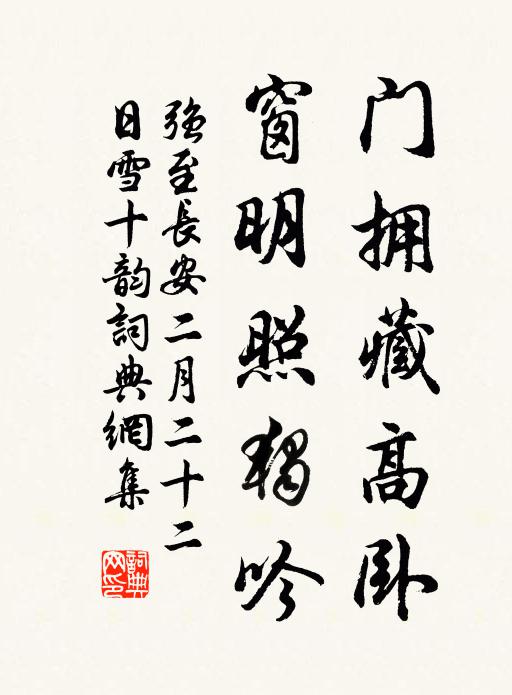 门拥藏高卧
窗明照独吟
强至長安二月二十二
日雪十韵詞典網集
詞典
网印